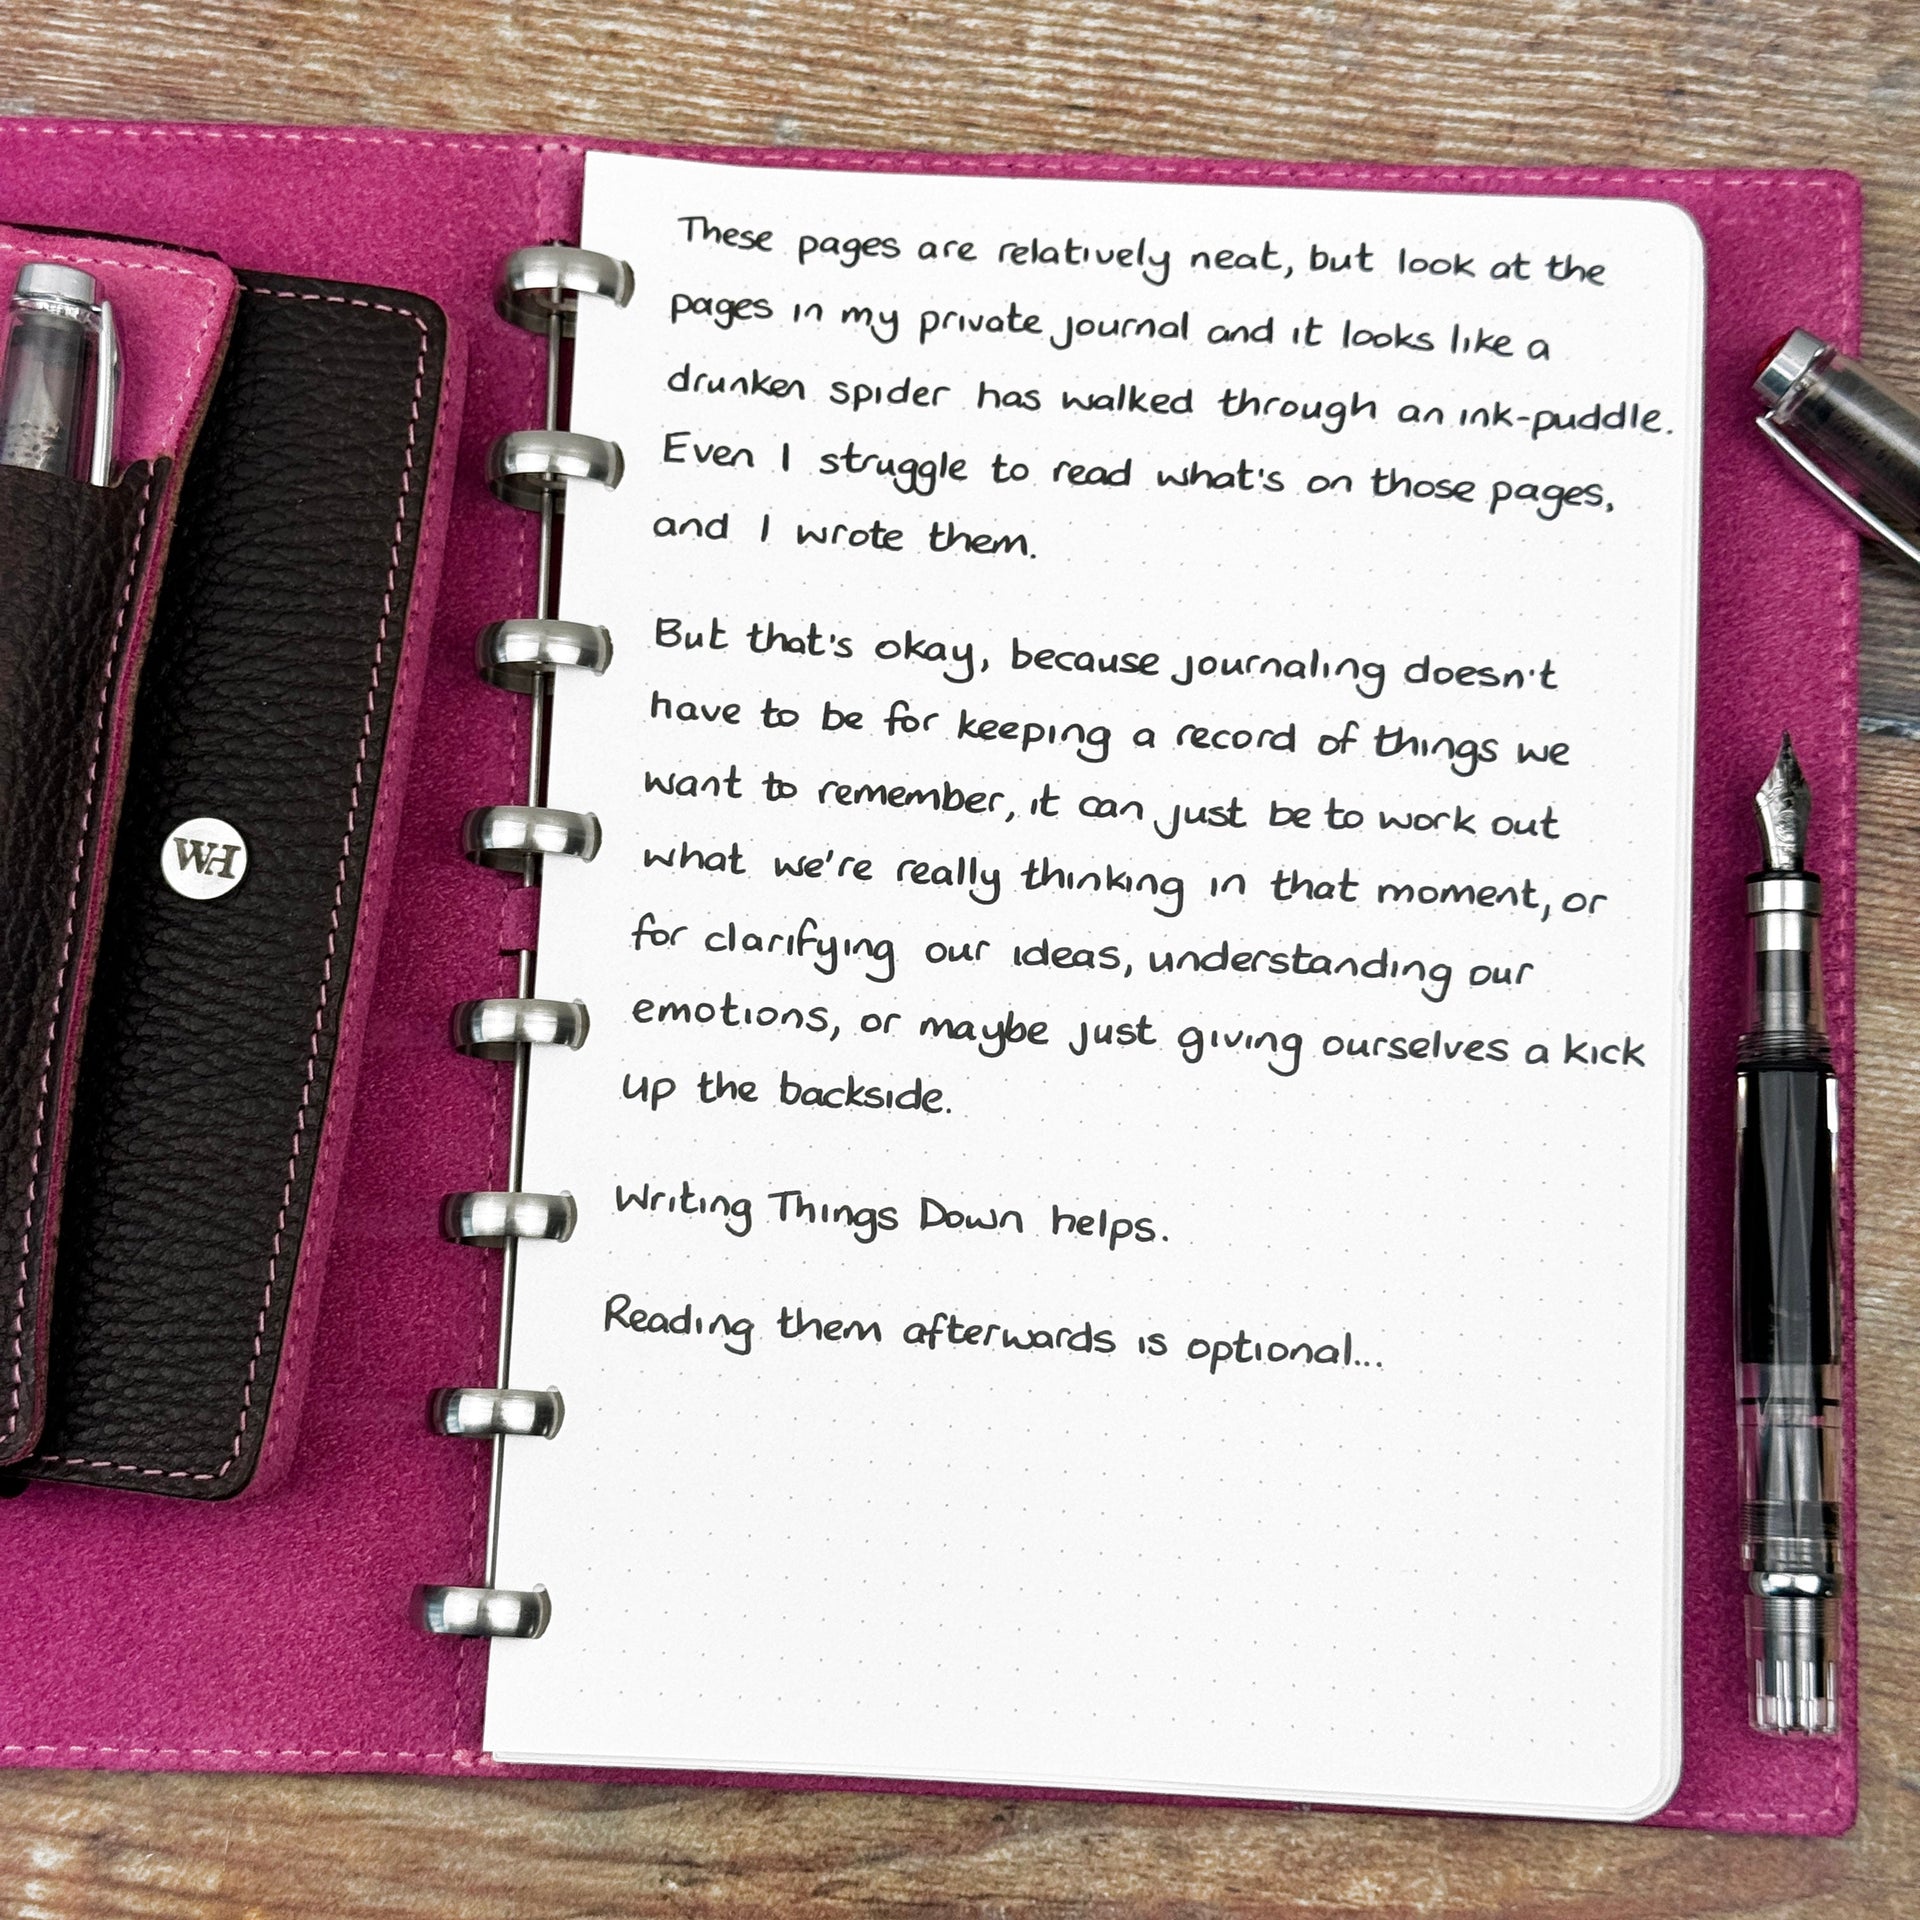 These pages are relatively neat, but look at the
pages in my private journal and it looks like a
drunken spider has walked through an ink-puddle.
Even I struggle to read what's on those pages,
and I wrote them.
But that's okay, because journaling doesn't
have to be for keeping a record of things we
want to remember, it can just be to work out
what we're really thinking in that moment, or
for clarifying our ideas, understanding our
emotions, or maybe just giving ourselves a kick
up the backside.
Writing Things Down helps.
Reading them afterwards is optional...
WH